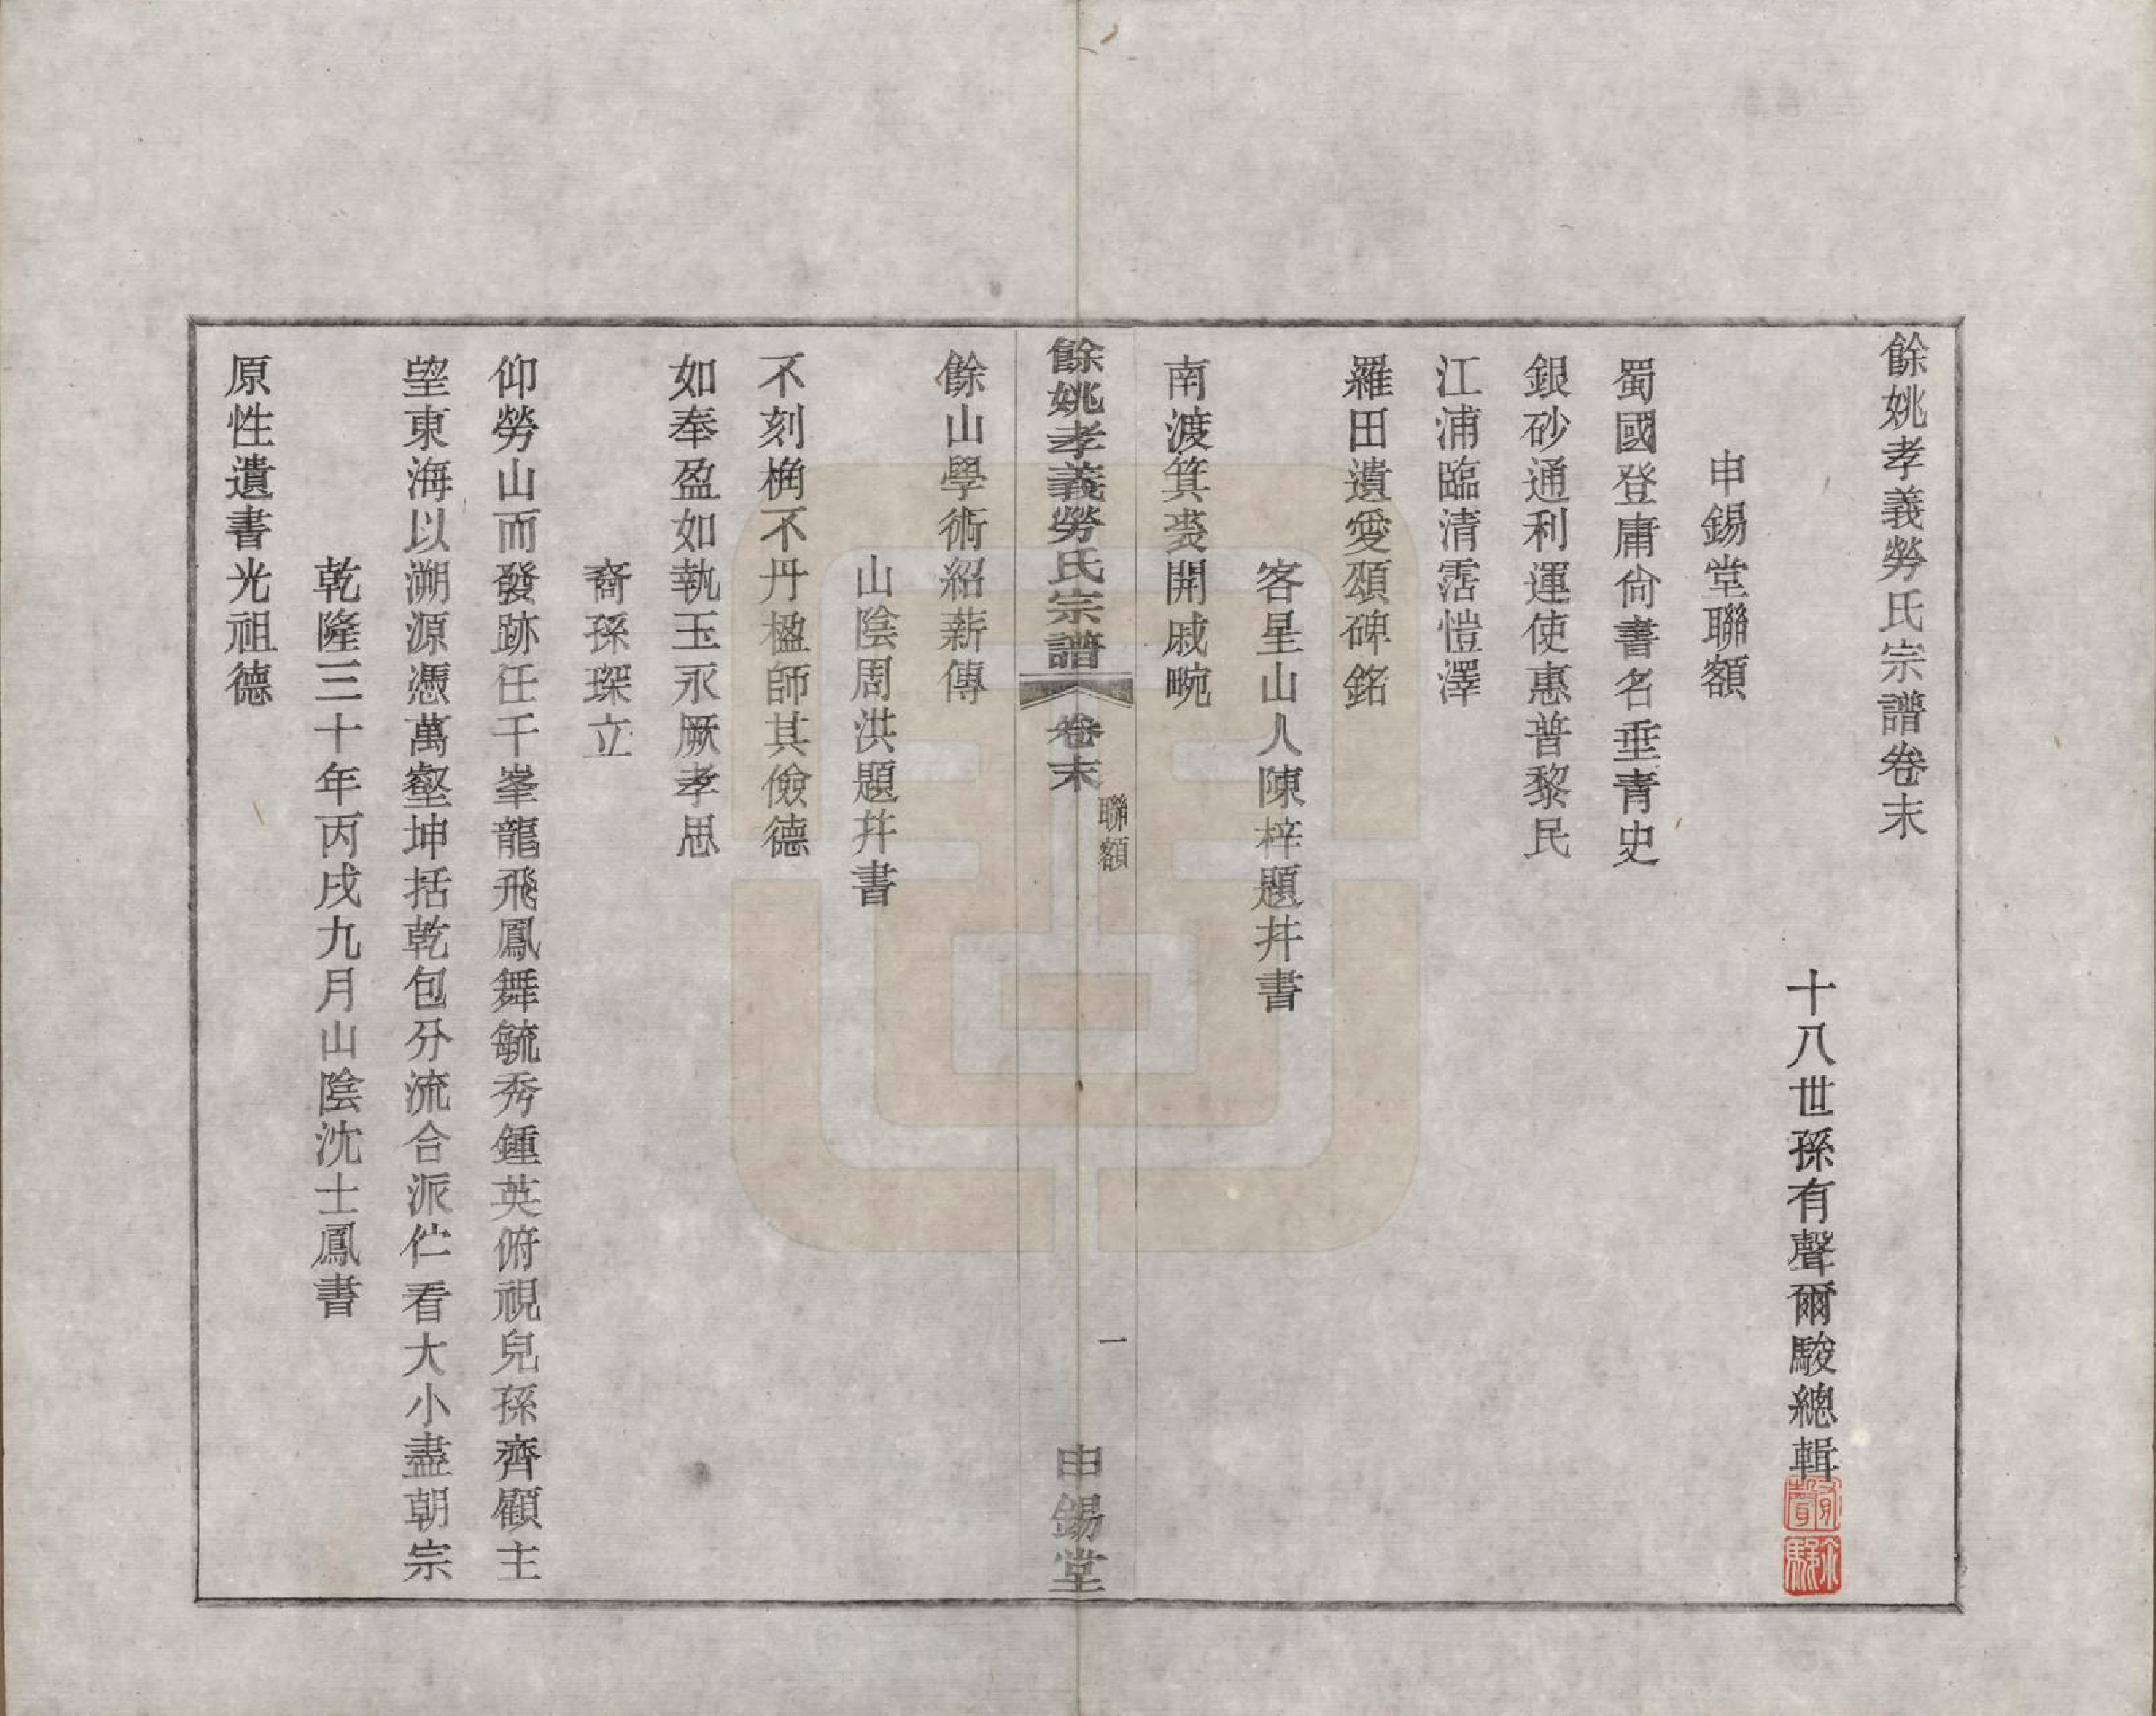 餘姚孝義勞氏宗譜卷末
十八世孫有聲爾駿總輯
有聲
尒駿
申錫堂聯額
蜀國登庸尙書名垂青史
銀砂通利運使惠普黎民
江浦臨清霑愷澤
羅田遺愛頌碑銘
客星山人陳梓題幷書
南渡箕裘開戚畹
餘姚孝義勞氏宗譜 卷末 聯額 一 申錫堂
餘山學術紹薪傳
山陰周洪題幷書
不刻桷不丹楹師其儉德
如奉盈如執玉永厥孝思
裔孫琛立
仰勞山而發跡任千峯龍飛鳳舞毓秀鍾英俯視兒孫齊顧主
望東海以溯源憑萬壑坤括乾包分流合派伫看大小盡朝宗
乾隆三十年丙戌九月山陰沈士鳳書
原性遺書光祖德